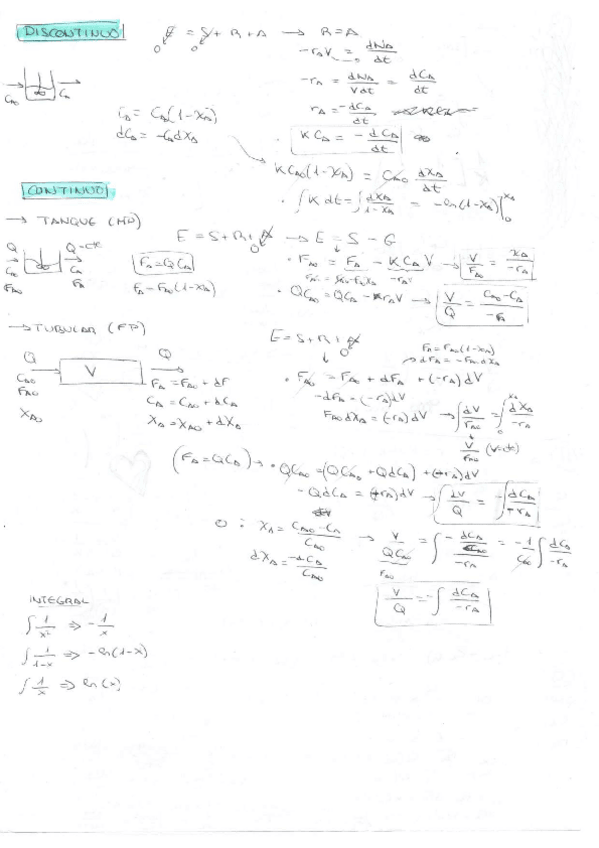 DISCONTINUO
E = S + R + A → R = A
0 0
-r_A V = dN_A/dt
-r_A = dN_A/Vdt = dC_A/dt
C_A0 C_A
C_A = C_A(1-X_A)
dC_A = -C_A dX_A
r_A = -dC_A/dt
K C_A = - dC_A/dt
K C_A0(1-X_A) = C_A0 dX_A/dt
∫ K dt = ∫ dX_A/1-X_A = -ln(1-X_A)|_0^X_A
CONTINUO
→ TANQUE (MP)
E = S + R + A → E = S - G
0
Q Q=cte
C_A0 C_A
F_A0 F_A
F_A = Q C_A
F_A = F_A0(1-X_A)
F_A0 = F_A - K C_A V → V/F_A0 = X_A/-r_A
QC_A0 = QC_A - r_A V → V/Q = C_A0-C_A/-r_A
→ TUBULAR (FP)
E = S + R + A
0
F_A = F_A0(1-X_A)
→ dF_A = -F_A0 dX_A
Q V Q
C_A0
F_A0
X_A0
F_A = F_A0 + dF
C_A = C_A0 + dC_A
X_A = X_A0 + dX_A
F_A0 = F_A0 + dF_A + (-r_A)dV
-dF_A = (-r_A)dV
F_A0 dX_A = (-r_A)dV → ∫ dV/F_A0 = ∫_0^X_A dX_A/-r_A
V/F_A0 (V=cte)
(F_A = QC_A) → QC_A0 = (QC_A0 + QdC_A) + (-r_A)dV
- QdC_A = (-r_A)dV → ∫ dV/Q = -∫ dC_A/-r_A
O : X_A = C_A0-C_A/C_A0 → V/QC_A0 = ∫ - dC_A/C_A0/-r_A = -1/C_A0 ∫ dC_A/-r_A
F_A0
dX_A = -dC_A/C_A0
V/Q = -∫ dC_A/-r_A
INTEGRAL
∫ 1/x² ⇒ -1/x
∫ 1/1-x ⇒ -ln(1-x)
∫ 1/x ⇒ ln(x)